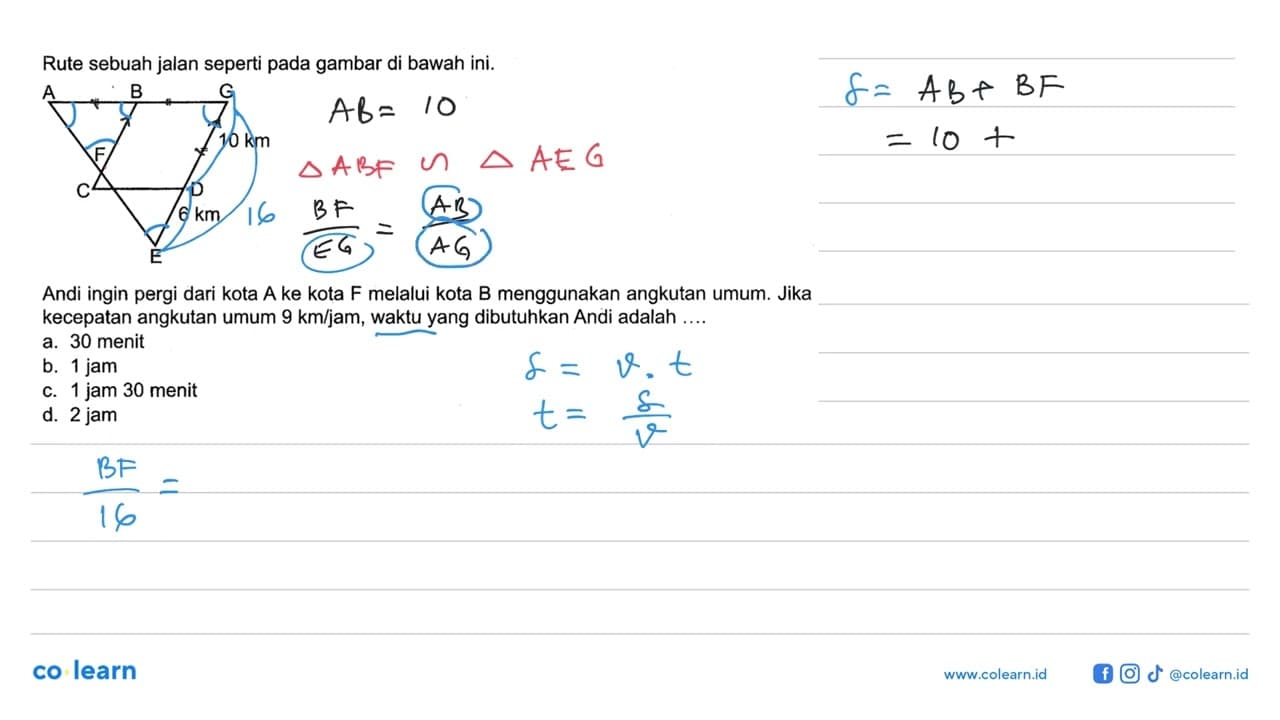 Rute sebuah jalan seperti pada gambar di bawah ini.
A B G
10 km
F
C D
6 km
16
E
AB = 10
△ ABF ∽ △ AEG
BF/EG = AB/AG
s = AB + BF
= 10 +
Andi ingin pergi dari kota A ke kota F melalui kota B menggunakan angkutan umum. Jika
kecepatan angkutan umum 9 km/jam, waktu yang dibutuhkan Andi adalah ....
a. 30 menit
b. 1 jam
c. 1 jam 30 menit
d. 2 jam
s = v . t
t = s/v
BF/16 =
co learn
www.colearn.id
@colearn.id